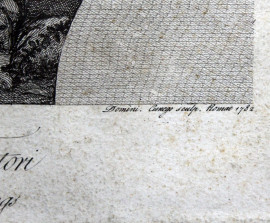 Domini: Cunego sculp. Romae 1782
tori
ngs